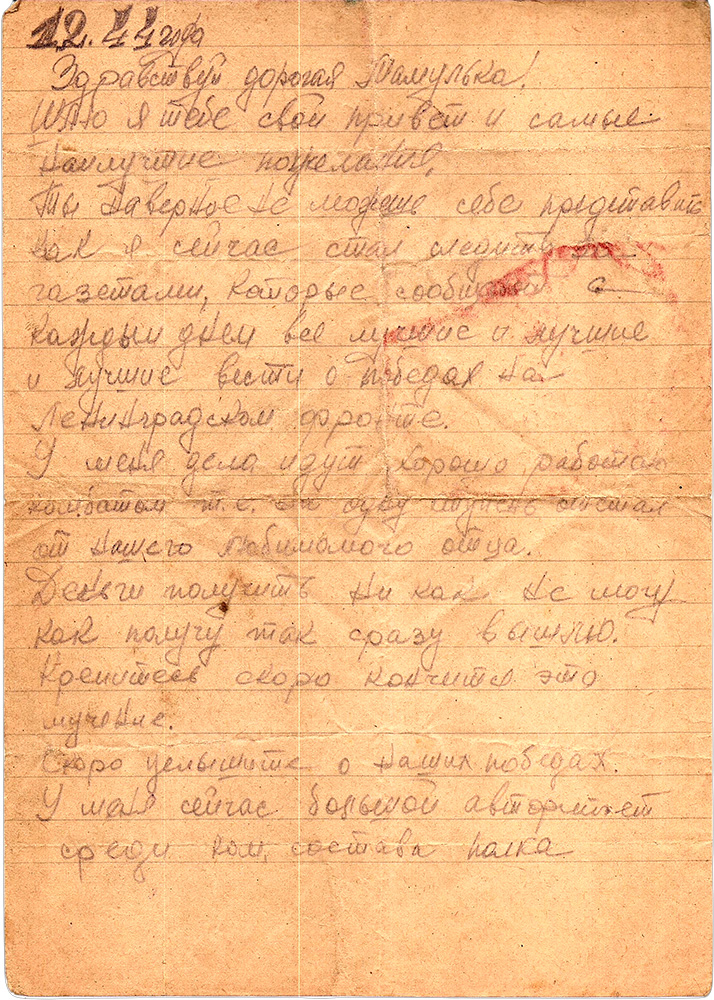 12.44 года
Здравствуй дорогая Мамулька!
Шлю я тебе свой привет и самые
наилучшие пожелания,
Ты наверное не можешь себе представить
как я сейчас стал следить за
газетами, которые сообщают с
каждым днем все лучшие и лучшие
и лучшие вести о победах на
Ленинградском фронте.
У меня дела идут хорошо работаю
комбатом т.е. на одну отстал
от нашего любимомого отца.
Деньги получить ни как не могу
как получу так сразу вышлю.
Крепитесь скоро кончится это
мучение.
Скоро услышите о наших победах.
У меня сейчас большой авторитет
среди ком. состава полка